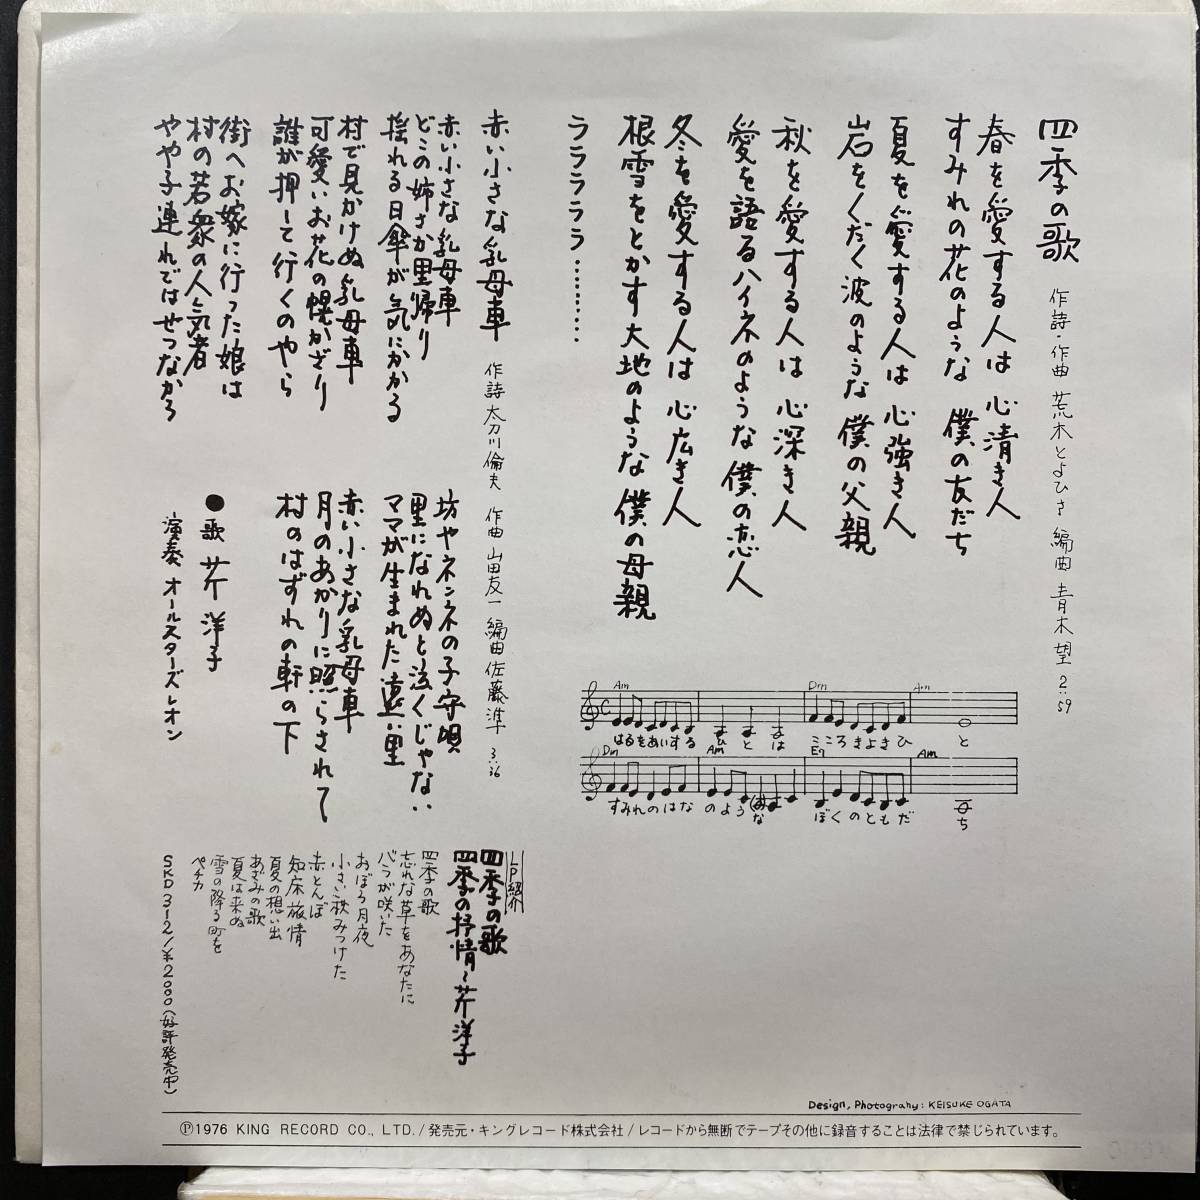 四季の歌
作詩・作曲 荒木とよひさ 編曲 青木望 2:59
春を愛する人は 心清き人
すみれの花のような 僕の友だち
夏を愛する人は 心強き人
岩をくだく波のような 僕の父親
秋を愛する人は 心深き人
愛を語るハイネのような 僕の恋人
冬を愛する人は 心広き人
根雪をとかす大地のような 僕の母親
ラララララ………
Am Dm Am
はるをあいする ひと は こころきよきひ と
Dm Am E7 Am
すみれのはな のよう(お)な ぼくのともだ ち
赤い小さな乳母車
作詩 太刀川倫夫 作曲 山田友一 編曲 佐藤準 3:36
赤い小さな乳母車
どこの姉さか里帰り
揺れる日傘が気にかかる
村で見かけぬ乳母車
可愛いお花の幌かざり
誰が押して行くのやら
街へお嫁に行った娘は
村の若衆の人気者
やや子連れではせつなかろ
坊やネンネの子守唄
里になれぬと泣くじゃない
ママが生まれた遠い里
赤い小さな乳母車
月のあかりに照らされて
村のはずれの軒の下
●歌 芹洋子
演奏 オールスターズレオン
LP紹介
四季の歌
四季の抒情〜芹洋子
四季の歌
忘れな草をあなたに
バラが咲いた
おぼろ月夜
小さい秋みつけた
赤とんぼ
知床旅情
夏の想い出
あざみの歌
夏は来ぬ
雪の降る町を
ペチカ
SKD 312/¥2000(好評発売中)
Design, Photograhy: KEISUKE OGATA
Ⓟ1976 KING RECORD CO., LTD./発売元・キングレコード株式会社/レコードから無断でテープその他に録音することは法律で禁じられています。